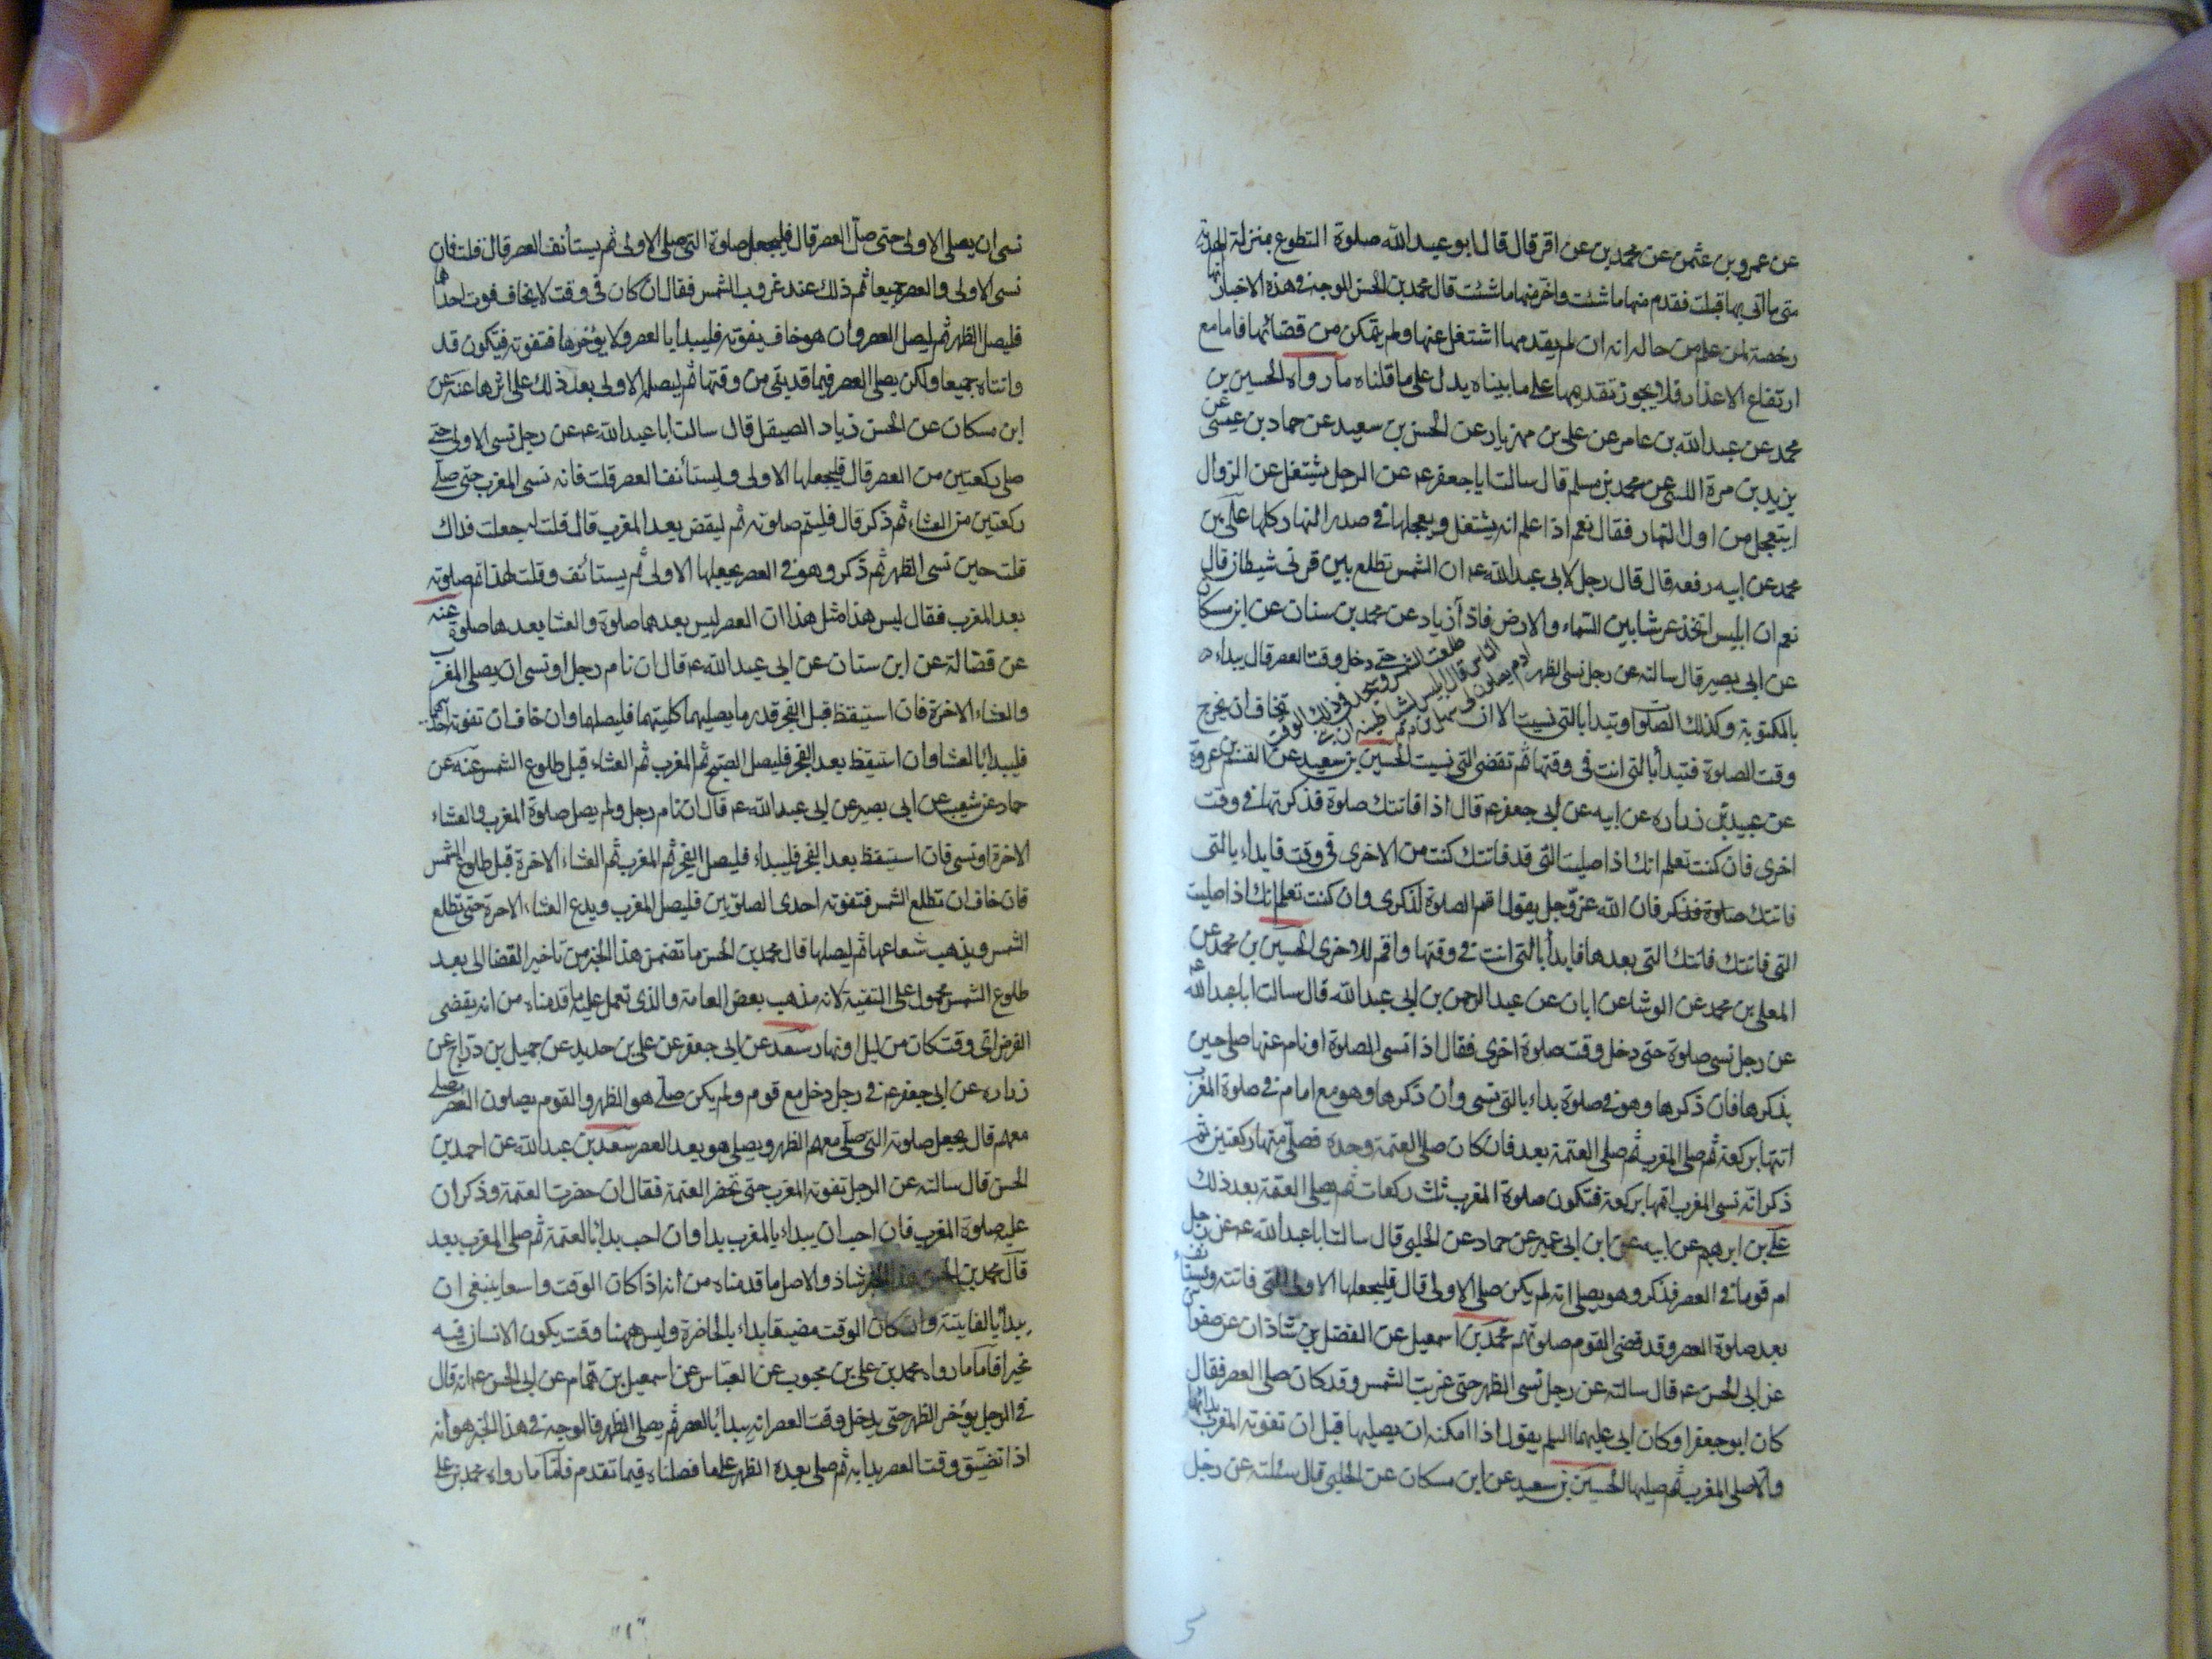 عن عمرو بن عثمن عن محمد بن عن اقر قال قال ابو عبد الله صلوة التطوع بمنزلة الهدية
متى ما اتى بها قبلت فقدم منها ما شئت واخر منها ما شئت قال محمد بن الحسن الوجه فى هذه الاخبار انها
رخصة لمن علم من حاله انه ان لم يقدمها اشتغل عنها ولم يتمكن من قضائها فاما مع
ارتفاع الاعذار فلا يجوز تقديمها على ما بيناه يدل على ما قلناه ما رواه الحسين بن
محمد عن عبد الله بن عامر عن على بن مهزيار عن الحسن بن سعيد عن حماد بن عيسى عن
يزيد بن مرة الليثى عن محمد بن مسلم قال سالت ابا جعفر عه عن الرجل يشتغل عن الزوال
ايتعجل من اول النهار فقال نعم اذا علم انه يشتغل ويعجلها فى صدر النهار كلها على بن
محمد عن ابيه رفعه قال قال رجل لابى عبد الله عه ان الشمس تطلع بين قرنى شيطان قال
نعم ان ابليس اتخذ عرشا بين السماء والارض فاذا زياد عن محمد بن سنان عن ابن مسكان
طلعت الشمس وسجد فى ذلك الوقت الناس قال ابليس لشياطينه ان بنى ادم يصلون لى
عن ابى بصير قال سالته عن رجل نسى الظهر حتى دخل وقت العصر قال يبداء
بالمكتوبة وكذلك الصلوا وتبدا بالتى نسيت الا ان تخاف ان يخرج
وقت الصلوة فتبدأ بالتى انت فى وقتها ثم تقضى التى نسيت الحسين بن سعيد عن القسم بن عروة
عن عبيد بن زراره عن ابيه عن ابى جعفر عه قال اذا فاتتك صلوة فذكرتها فى وقت
اخرى فان كنت تعلم انك اذا صليت التى قد فاتتك كنت من الاخرى فى وقت فابداء بالتى
فاتتك صلوة فذكر فان الله عز وجل يقول اقم الصلوة لذكرى وان كنت تعلم انك اذا صليت
التى فاتتك فاتتك التى بعدها فابدأ بالتى انت فى وقتها واقم للاخرى الحسين بن محمد عن
المعلى بن محمد عن الوشا عن ابان عن عبد الرحمن بن ابى عبد الله قال سالت ابا عبد الله عه
عن رجل نسى صلوة حتى دخل وقت صلوة اخرى فقال اذا نسى الصلوة او نام عنها صلى حين
يذكرها فان ذكرها وهو فى صلوة بداء بالتى نسى وان ذكرها وهو مع امام فى صلوة المغرب
اتمها بركعة ثم صلى المغرب ثم صلى العتمة بعد فان كان صلى العتمة وحده فصلى منها ركعتين ثم
ذكر انه نسى المغرب اتمها بركعة فتكون صلوة المغرب ثلث ركعات ثم يصلى العتمة بعد ذلك
على بن ابرهيم عن ابيه عن ابن ابى عمير عن حماد عن الحلبى قال سالت ابا عبد الله عه عن رجل
ام قوما فى العصر فذكر وهو يصلى انه لم يكن صلى الاولى قال فليجعلها الاولى التى فاتته ويستأنف
بعد صلوة العصر وقد قضى القوم صلوتهم محمد بن اسمعيل عن الفضل بن شاذان عن صفوان
عن ابى الحسن عه قال سالته عن رجل نسى الظهر حتى غربت الشمس وقد كان صلى العصر فقال
كان ابو جعفر او كان ابى عليهما السلم يقول اذا امكنه ان يصليها قبل ان تفوته المغرب بدأ بها
والا صلى المغرب ثم صليها الحسين بن سعيد عن ابن مسكان عن الحلبى قال سئلته عن رجل
نسى ان يصلى الاولى حتى صلى العصر قال فليجعل صلوة التى صلى الاولى ثم يستأنف العصر قال قلت فان
نسى الاولى والعصر جميعا ثم ذلك عند غروب الشمس فقال ان كان فى وقت لا يخاف فوت احداهما
فليصل الظهر ثم ليصل العصر وان هو خاف يفوته فليبدأ بالعصر ولا يؤخرها فتفوته فيكون قد
فاتتاه جميعا ولكن يصلى العصر فيما قد بقى من وقتها ثم ليصلى الاولى بعد ذلك على اثرها عنه عن
ابن مسكان عن الحسن زياد الصيقل قال سالت ابا عبد الله عه عن رجل نسى الاولى حتى
صلى ركعتين من العصر قال فليجعلها الاولى وليستأنف العصر قلت فانه نسى المغرب حتى صلى
ركعتين من العشاء ثم ذكر قال فليتم صلوته ثم ليقض بعد المغرب قال قلت له جعلت فداك
قلت حين نسى الظهر ثم ذكر وهو فى العصر يجعلها الاولى ثم يستأنف وقلت لهذا تم صلوته
بعد المغرب فقال ليس هذا مثل هذا ان العصر ليس بعدها صلوة والعشا بعدها صلوة عنه
عن فضالة عن ابن سنان عن ابى عبد الله عه قال ان نام رجل او نسى ان يصلى المغرب
والعشاء الاخرة فان استيقظ قبل الفجر قدر ما يصليهما كليتهما فليصلها وان خاف ان تفوته احديهما
فليبدأ بالعشا وان استيقظ بعد الفجر فليصل الصبح ثم المغرب ثم العشاء قبل طلوع الشمس عنه عن
حماد عن شعيب عن ابى بصير عن ابى عبد الله عه قال ان نام رجل ولم يصل صلوة المغرب والعشاء
الاخرة او نسى فان استيقظ بعد الفجر فليبداء فليصل الفجر ثم المغرب ثم العشاء الاخرة قبل طلوع الشمس
فان خاف ان تطلع الشمس فتفوته احدى الصلوتين فليصل المغرب ويدع العشاء الاخرة حتى تطلع
الشمس ويذهب شعاعها ثم ليصلها قال محمد بن الحسن ما تضمن هذا الخبر من تاخير القضا الى بعد
طلوع الشمس محمول على التقية لانه مذهب بعض العامة والذى تعمل عليه ما قدمناه من انه يقضى
الفرض اى وقت كان من ليل او نهار سعد عن ابى جعفر عن على بن حديد عن جميل بن دراج عن
زراره عن ابى جعفر عه فى رجل دخل مع قوم ولم يكن صلى هو الظهر والقوم يصلون العصر يصلى
معهم قال يجعل صلوته التى صلى معهم الظهر ويصلى هو بعد العصر سعد بن عبد الله عن احمد بن
الحسن قال سالته عن الرجل تفوته المغرب حتى تحضر العتمة فقال ان حضرت العتمة وذكر ان
عليه صلوة المغرب فان احب ان يبداء بالمغرب بدا وان احب بدأ بالعتمة ثم صلى المغرب بعد
قال محمد بن الحسن هذا الخبر شاذ والاصل ما قدمناه من انه اذا كان الوقت واسعا ينبغى ان
يبدأ بالفايتة وان كان الوقت مضيقا بداء بالحاضرة وليس ههنا وقت يكون الانسان فيه
مخيرا فاما ما رواه محمد بن على بن محبوب عن العباس عن اسمعيل بن همام عن ابى الحسن عه انه قال
فى الرجل يؤخر الظهر حتى يدخل وقت العصر انه يبدأ بالعصر ثم يصلى الظهر فالوجه فى هذا الخبر هو انه
اذا تضيق وقت العصر بدا به ثم صلى بعده الظهر على ما فصلناه فيما تقدم فاما ما رواه محمد بن على